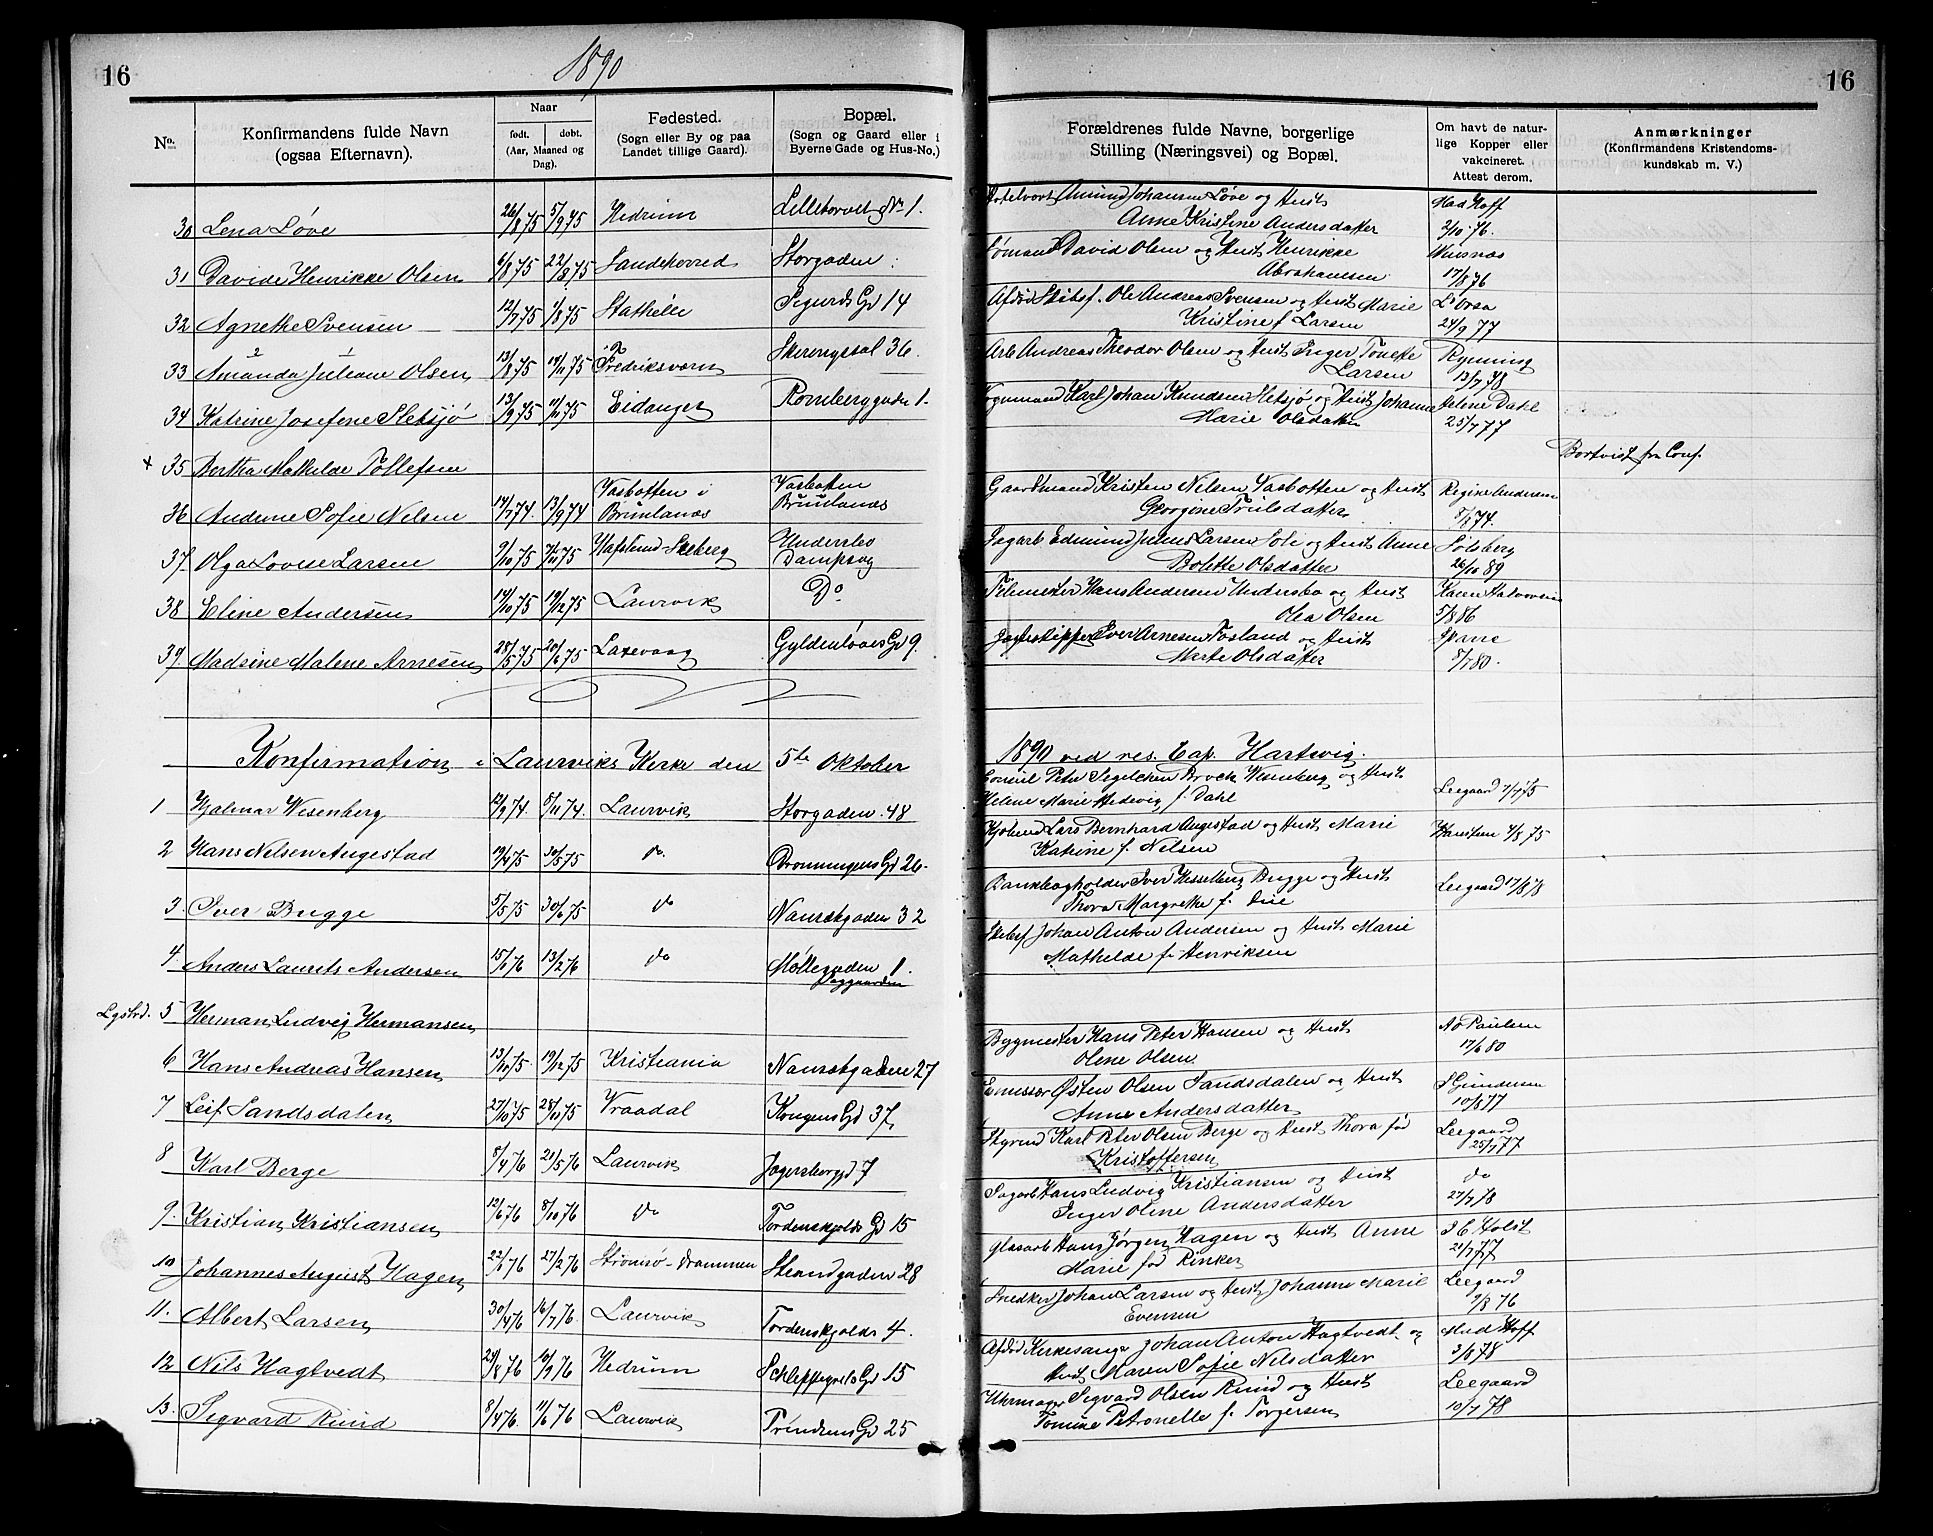 16
1890
16
No.
Konfirmandens fulde Navn
(ogsaa Efternavn).
Naar
født. døbt.
(Aar, Maaned og Dag).
Fødested.
(Sogn eller By og paa
Landet tillige Gaard).
Bopæl.
(Sogn og Gaard eller i
Byerne Gade og Hus-No.)
Forældrenes fulde Navne, borgerlige
Stilling (Næringsvei) og Bopæl.
Om havt de natur-
lige Kopper eller
vakcineret.
Attest derom.
Anmærkninger
(Konfirmandens Kristendoms-
kundskab m. V.)
30 Lena Løve 26/8 75 5/9 75 Hedrum Lilletorvet No 1. Amund Johansen Løve og Hust Mad Hoff
Anne Kristine Andersdatter 2/10 76.
31 Davide Henrikke Olsen 6/8 75 22/8 75 Sandeherred Storgaden Sømand David Olsen og Hust Henrikke
Abrahamsen 17/8 76
32 Agnethe Svensen 12/7 75 1/8 75 Stathelle Sigurds Gd 14 Afdød Skibsf. Ole Andreas Svensen og Hust Marie
Kristine f. Larsen 24/9 77
33 Amanda Juliane Olsen 13/8 75 14/11 75 Fredriksværn 36. Arb Andreas Theodor Olsen og Hust Inger Tomine Rynning
Larsen 13/7 78
34 Katrine Josefine Sletsjø 13/9 75 Eidanger Romberggaden 1. Vognmand Karl Johan Knudsen Sletsjø og Hust Johanne Helene Dahl
Marie Olsdatter 25/7 77
+ 35 Bertha Mathilde Tollefsen Bortvist fra Conf.
36 Andrine Sofie Nelsen 14/7 74. 13/9 74 Vasbotten i Brunlanæs Vasbotten Brunlanæs Gaardmand Kristen Nelsen Vasbotten og Hust Regine Andersen
Georgine Trulsdatter
37. Olga Lovise Larsen 9/10 75 Hafslund Skeberg Undersbo Dampsag Sagarb Edmund Julius Larsen Soli og Hust Anne Solberg
Bolette Olsdatter 26/10 89
38 Eline Andersen 14/10 75 19/12 75 Laurvik Do Tilemester Hans Andersen Undersbo og Hust Karen Halvorsen
Olea Olsen 5/8 86
39. Madsine Malene Arnesen 28/5 75 20/6 75 Laxevaag Gyldenløves Gd 9. Jagtskipper Iver Arnesen Fosland og Hust
Marte Olsdatter 5/7 80.
Konfirmation i Laurviks Kirke den 5te Oktober 1890 ved res. Cap. Hartvig.
1 Hjalmar Wesenberg 12/9 74. 8/11 74. Laurvik Storgaden 48 Consul Peter Segelcken Brock Wesenberg og Hust
Helene Marie Hedevig f. Dahl Leegaard 7/7 75
2 Hans Nelsen Augestad 19/4 75 30/5 75 do. Dronningens Gd 26. Lars Bernhard Augestad og Hust Marie
Katrine f. Nelsen Hansten 4/8 75
3. Iver Bugge 5/5 75 30/6 75 do Nansetgaden 32 Bankbogholder Iver Hesselberg Bugge og Hust
Thora Margrethe f. Due Leegaard 17/8 78
4. Anders Laurits Andersen 15/1 76 13/2 76 do Møllegaden 1. Skibsf Johan Anton Andersen og Hust Marie
Mathilde f. Henriksen
5 Herman Ludvig Hermansen
6 Hans Andreas Hansen 13/10 75. 19/12 75 Kristiania Nansetgaden 27 Bygmester Hans Peter Hansen og Hust
Olene Olsen Paulsen 17/6 80
7 Leif Sandsdalen 27/10 75 28/10 75 Vraadal Kongens Gd 37, Emissær Østen Olsen Sandsdalen og Hust S Gundersen
Anne Andersdatter 10/8 77
8 Karl Berge 8/4 76 21/5 76 Laurvik Jegersborggd 7 Styrmd Karl Peter Olsen Berge og Hust Thora fød
Kristoffersen Leegaard 25/7 77
9. Kristian Kristiansen 12/6 76 8/10 76 do Tordenskjolds Gd 15 Sagarb Hans Ludvig Kristiansen og Hust do
Inger Olene Andersdatter 27/7 78
10 Johannes August Hagen 22/1 76 27/2 76 Strømsø - Drammen Strandgaden 28 Glasarb Hans Jørgen Hagen og Hust Anne
Marie fød Rinker Holst 21/7 77
11. Albert Larsen 30/4 76 16/7 76. Laurvik Tordenskjolds 4. Snedker Johan Larsen og Hust Johanne Marie Leegaard
Evensen 9/8 76
12 Nils Hagtvedt 24/8 76 10/9 76 Hedrum Schleppegrels Gd 15 Afdød Kirkesanger Johan Anton Hagtvedt og Mad Hoff
Hust Maren Sofie Nilsdatter 3/6 78
13. Sigvard Ruud 8/4 76. 11/6 76 Laurvik Frundens Gd 25 Uhrmager Sigvard Olsen Ruud og Hust Leegaard
Tomine Petronelle f. Torgersen 10/7 78